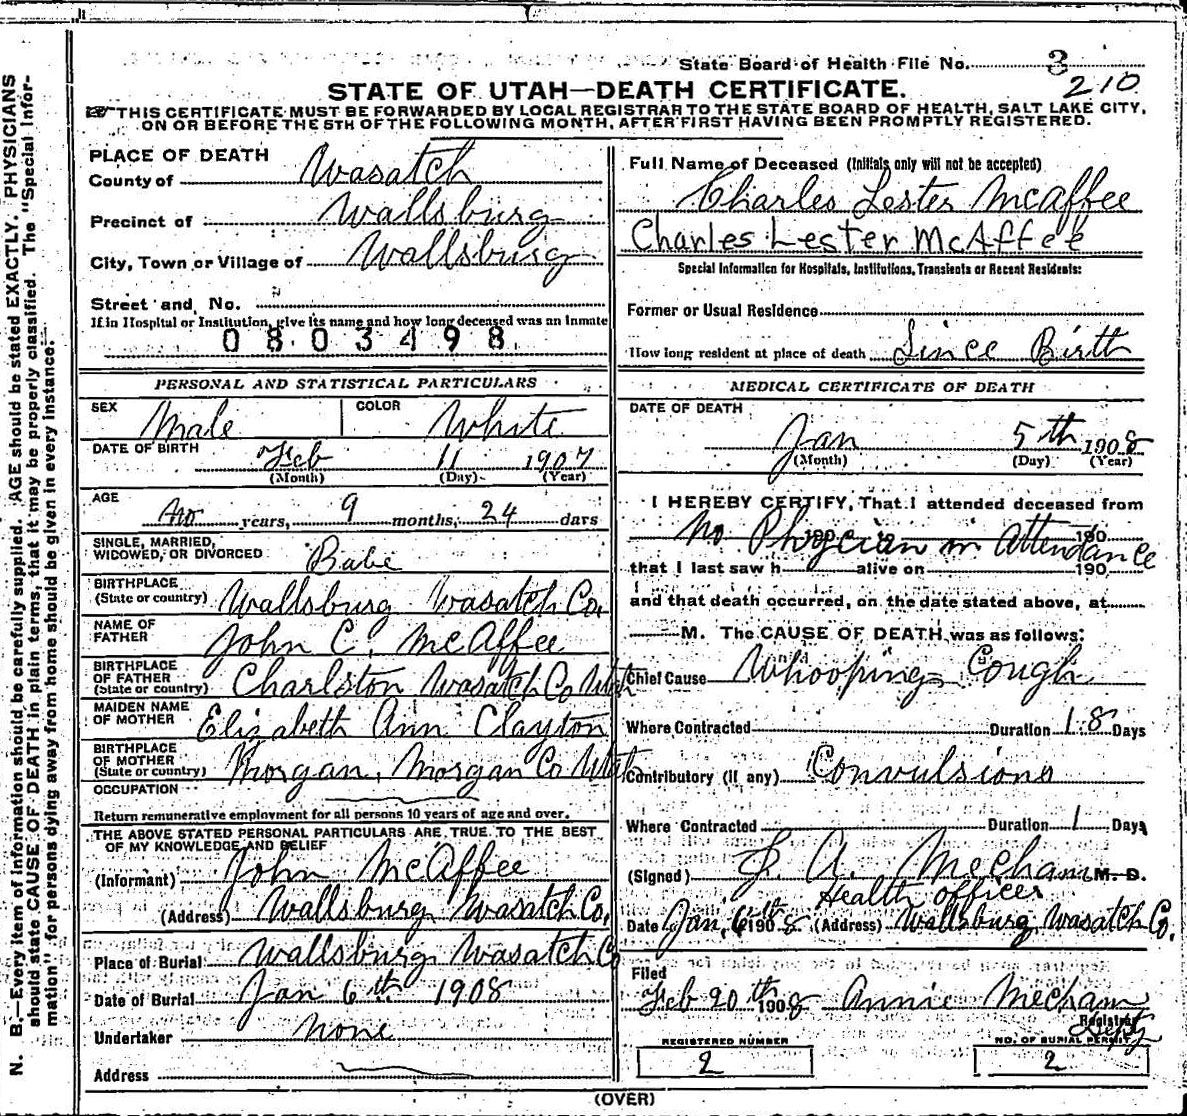 State Board of Health File No. 3
210
STATE OF UTAH—DEATH CERTIFICATE.
THIS CERTIFICATE MUST BE FORWARDED BY LOCAL REGISTRAR TO THE STATE BOARD OF HEALTH, SALT LAKE CITY,
ON OR BEFORE THE 5TH OF THE FOLLOWING MONTH, AFTER FIRST HAVING BEEN PROMPTLY REGISTERED.
PLACE OF DEATH
County of Wasatch
Precinct of Wallsburg
City, Town or Village of Wallsburg
Street and No.
If in Hospital or Institution, give its name and how long deceased was an inmate
0803498
PERSONAL AND STATISTICAL PARTICULARS
SEX Male COLOR White
DATE OF BIRTH Feb 11 1907
(Month) (Day) (Year)
AGE
no years, 9 months, 24 days
SINGLE, MARRIED,
WIDOWED, OR DIVORCED Babe
BIRTHPLACE
(State or country) Wallsburg Wasatch Co.
NAME OF
FATHER John C. McAffee
BIRTHPLACE
OF FATHER
(State or country) Charlston Wasatch Co Utah
MAIDEN NAME
OF MOTHER Elizabeth Ann Clayton
BIRTHPLACE
OF MOTHER
(State or country) Morgan, Morgan Co Utah
OCCUPATION
Return remunerative employment for all persons 10 years of age and over.
THE ABOVE STATED PERSONAL PARTICULARS ARE TRUE TO THE BEST
OF MY KNOWLEDGE AND BELIEF
(Informant) John McAffee
(Address) Wallsburg Wasatch Co.
Place of Burial Wallsburg Wasatch Co
Date of Burial Jan 6th 1908
Undertaker none
Address
Full Name of Deceased (Initials only will not be accepted)
Charles Lester McAffee
Charles Lester McAffee
Special Information for Hospitals, Institutions, Transients or Recent Residents:
Former or Usual Residence
How long resident at place of death Since Birth
MEDICAL CERTIFICATE OF DEATH
DATE OF DEATH
Jan 5th 1908
(Month) (Day) (Year)
I HEREBY CERTIFY, That I attended deceased from
No Phycician in Attendance 190
that I last saw h alive on 190
and that death occurred, on the date stated above, at
M. The CAUSE OF DEATH was as follows:
Chief Cause Whooping Cough
Where Contracted Duration 18 Days
Contributory (if any) Convulsions
Where Contracted Duration 1 Days
(Signed) L. A. Mecham M. D.
Health officer
Date Jan, 6th 1908 (Address) Wallsburg Wasatch Co.
Filed
Feb 20th 1908 Annie Mecham
Registrar
Depty
REGISTERED NUMBER NO. OF BURIAL PERMIT
2 2
(OVER)
N. B.—Every item of information should be carefully supplied. AGE should be stated EXACTLY. PHYSICIANS
should state CAUSE OF DEATH in plain terms, that it may be properly classified. The "Special Infor-
mation" for persons dying away from home should be given in every instance.